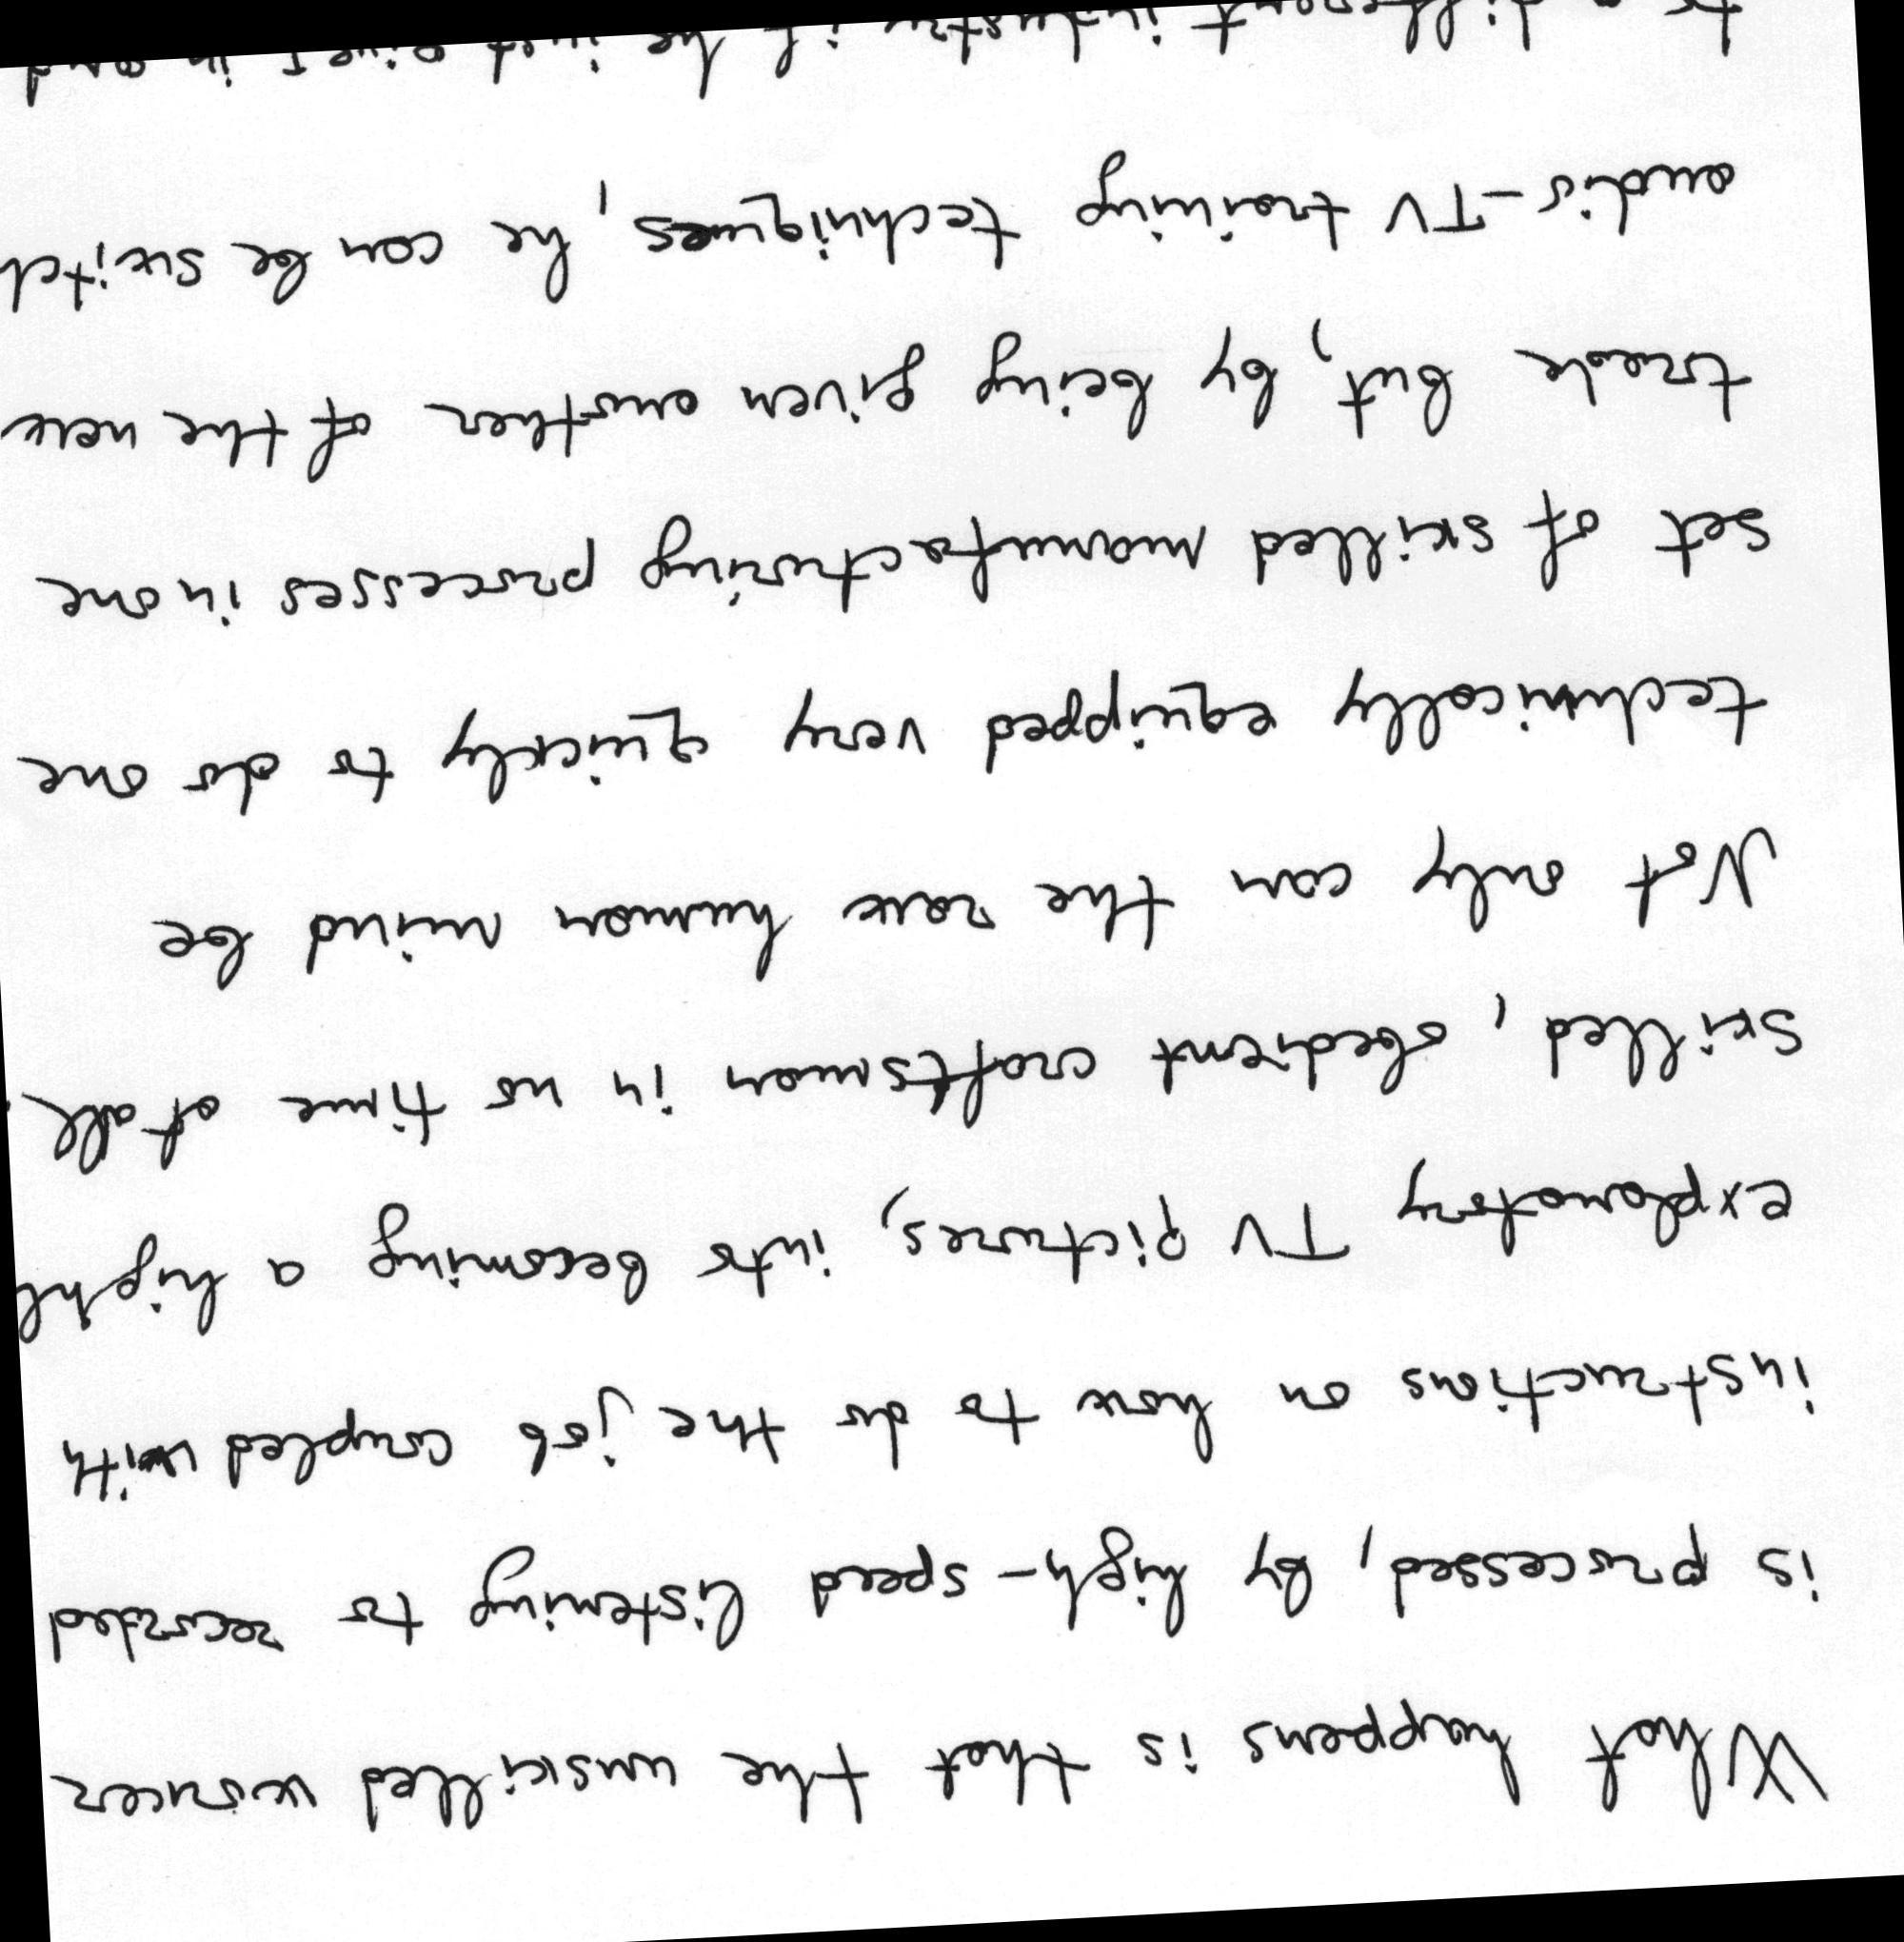 What happens is that the unskilled worker
is processed, by high-speed listening to recorded
instructions on how to do the job coupled with
explanatory TV pictures, into becoming a highl
skilled, obedient craftsman in no time at all.
Not only can the raw human mind be
technically equipped very quickly to do one
set of skilled manufacturing processes in one
trade but, by being given another of the new
audio-TV training techniques, he can be switch
to a different industry if he just gives in and